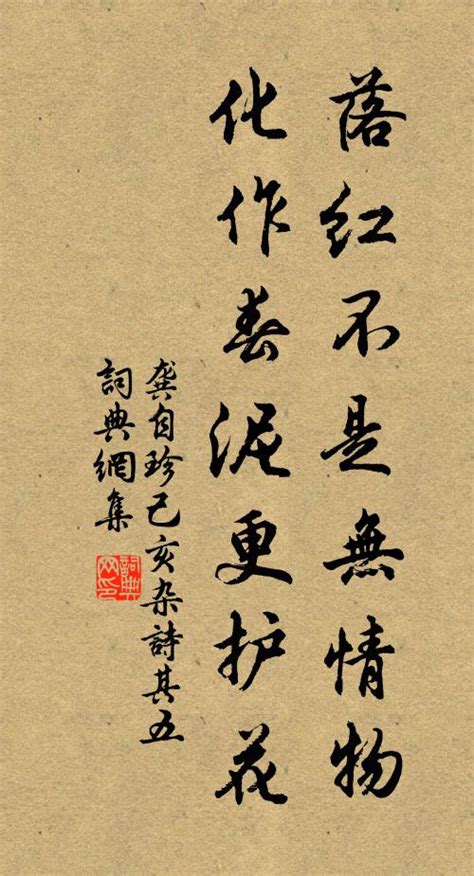 落红不是無情物
化作春泥更护花
龚自珍己亥杂詩其五
詞典網集
詞典网印